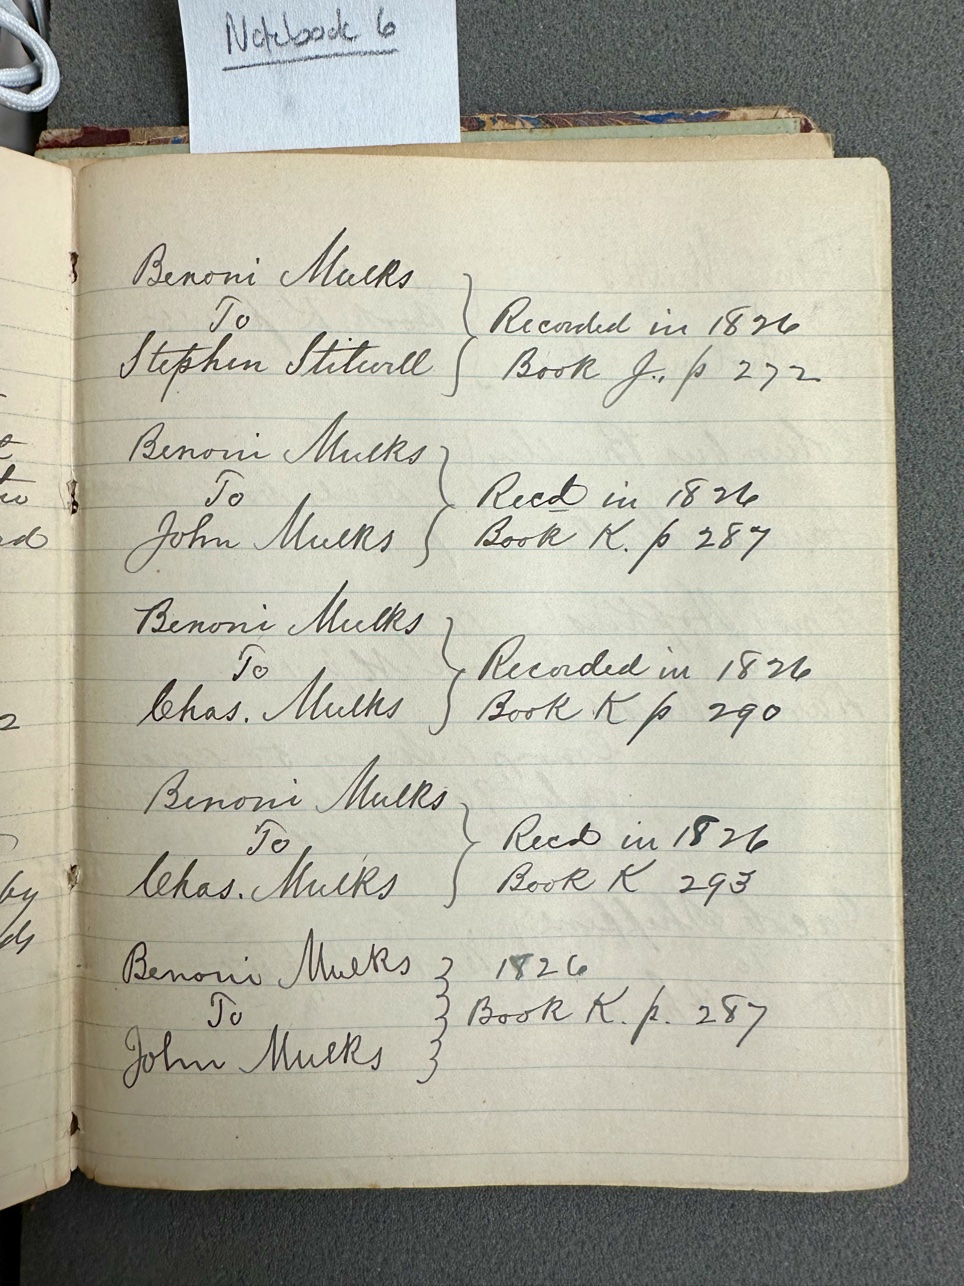 Notebook 6
Benoni Mulks
To
Stephen Stilwell
Recorded in 1826
Book J., p 272
Benoni Mulks
To
John Mulks
Recd in 1826
Book K. p 287
Benoni Mulks
To
Chas. Mulks
Recorded in 1826
Book K p 290
Benoni Mulks
To
Chas. Mulks
Recd in 1826
Book K 293
Benoni Mulks
To
John Mulks
1826
Book K. p. 287
by